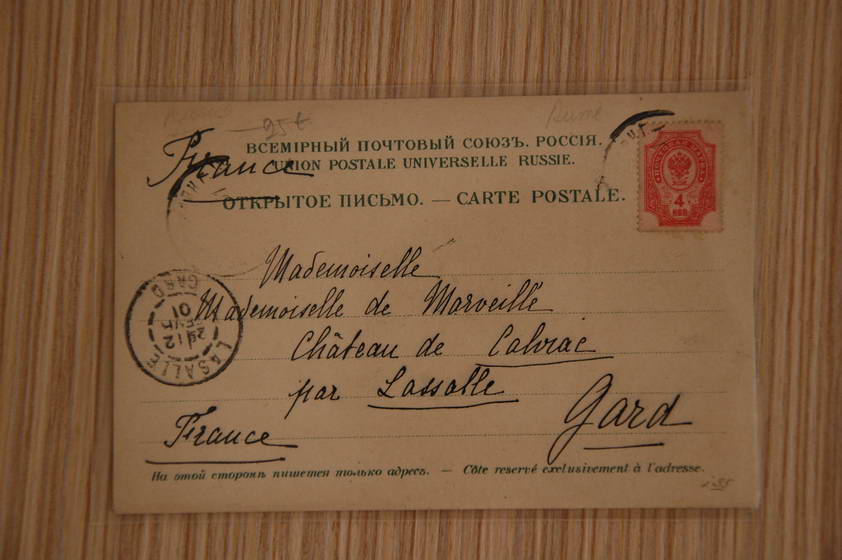 France
25 €
ВСЕМІРНЫЙ ПОЧТОВЫЙ СОЮЗЪ. РОССІЯ.
UNION POSTALE UNIVERSELLE RUSSIE.
ОТКРЫТОЕ ПИСЬМО. — CARTE POSTALE.
4
КОП
Mademoiselle
Mademoiselle de Marveille
Château de Calviac
par Lassalle
Gard
France
LASALLE
GARD
12
01
На этой сторонѣ пишется только адресъ. — Côté reservé exclusivement à l'adresse.